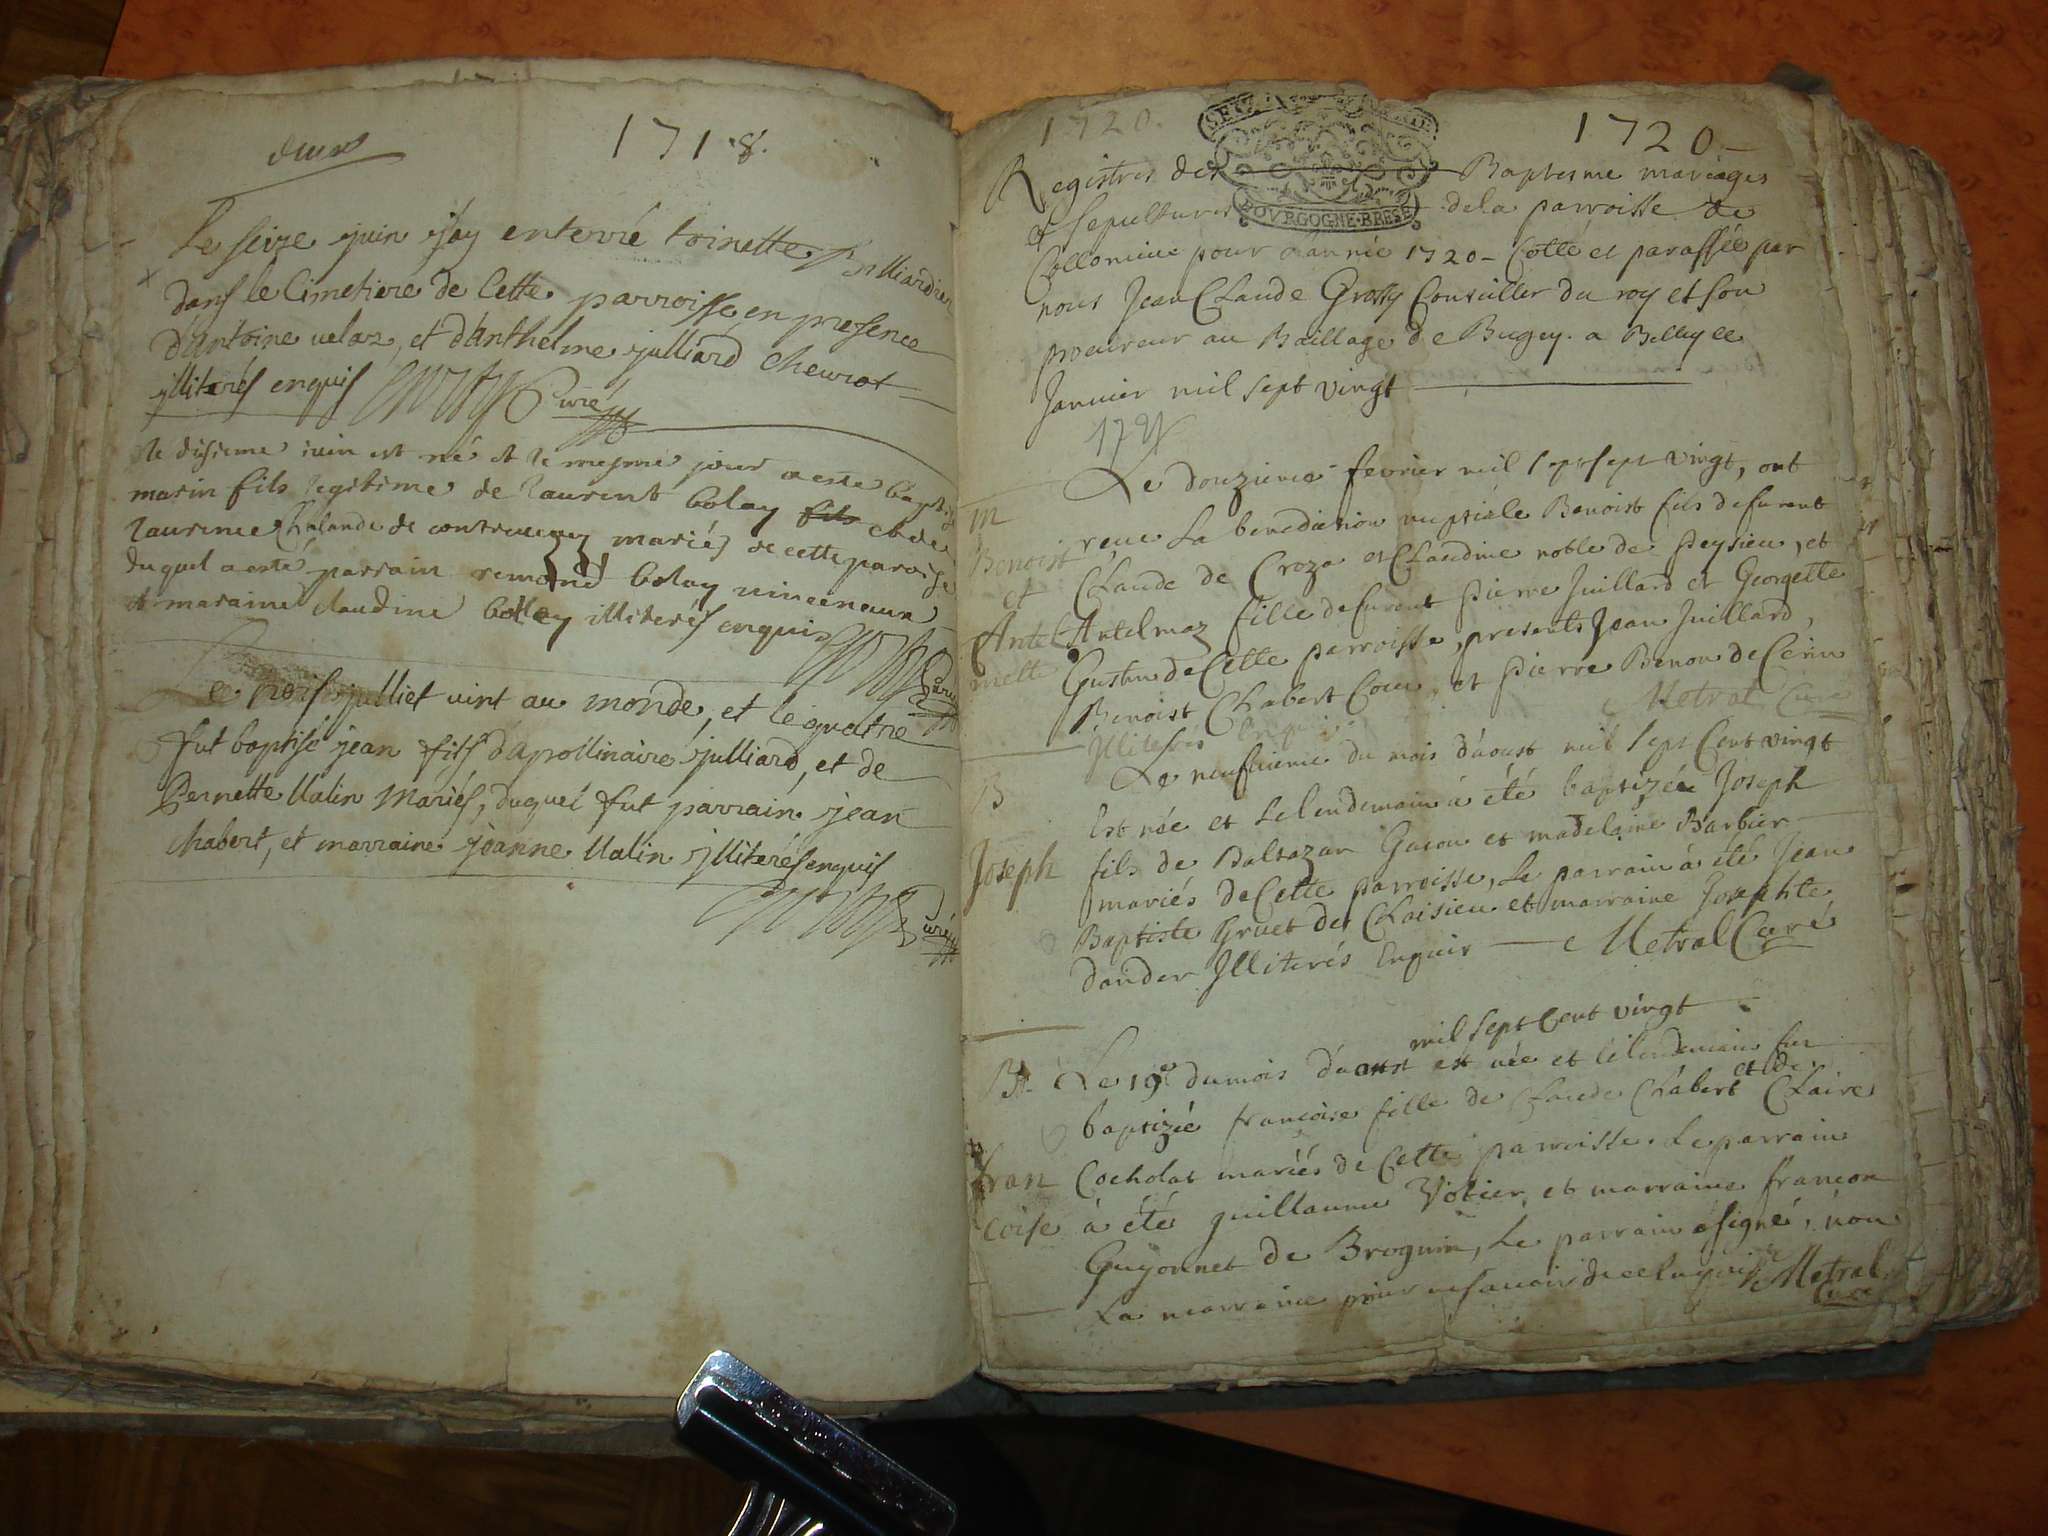 1718.
Le seize juin j'ay enterré toinette
dans le Cimetiere de Cette parroisse en presence
d'Antoine uelaz, et d'Anthelme julliard cheurot
jlliterés enquis Curé
le disieme iuin est né et le mesme jour a esté baptisé
marin fils legitime de laurent bolay fils et de
laurence Chalande de mariés de cette paroisse
duquel a esté parrain remond bolay
et maraine claudine bolley illiterés enquis
Curé
Le trois julliet uint au monde, et le quatre
fut baptisé jean fils d'apollinaire julliard, et de
Pernette Ualin Mariés, duquel fut parrain jean
chabert, et marraine joanne Ualin jlliterés enquis
Curé
1720. 1720
Registres des Baptesme mariages
et sepultures de la parroisse de
BOVRGOGNE·BRESSE
Collomieu pour l'année 1720 - Cotté et paraffée par
nous Jean Claude Grossy Conseiller du roy et son
procureur au Baillage de Bugey a Belley ce
Janvier mil sept vingt
Le douzieme fevrier mil sept vingt, ont
m
Benoist reçu La benediction nuptiale Benoist fils de furent
et Claude de Croza et Claudine noble de Peysieu, et
Antel Antelmaz fille de furent Pierre Juillard et Georgette
mette Gustin de Cette parroisse, presents Jean Juillard,
Benoist Chabert et Pierre Benon de Cerin
Illiterés Enquis Metral Curé
Le neufvieme du mois d'aoust mil sept Cent vingt
B
Est née et Le lendemain a été baptizée Joseph
Joseph fils de Baltazar Gason et madelaine Barbier
mariés de Cette parroisse, Le parrain a été Jean
Baptiste Gruet de Chaisieu et marraine Josephte
dander Jlliterés Enquis Metral Curé
mil sept Cent vingt
B. Le 19e du mois d'aoust est née et le lendemain fut
et de
baptizée francoise fille de Claude Chabert Claire
fran Cocholat mariés de Cette parroisse. Le parrain
coise à été guillaume Votier, et marraine françon
Guyonnet de Brognin, Le parrain a signé, non
La marraine pour ne sauoir de ce Enquise Metral
Curé